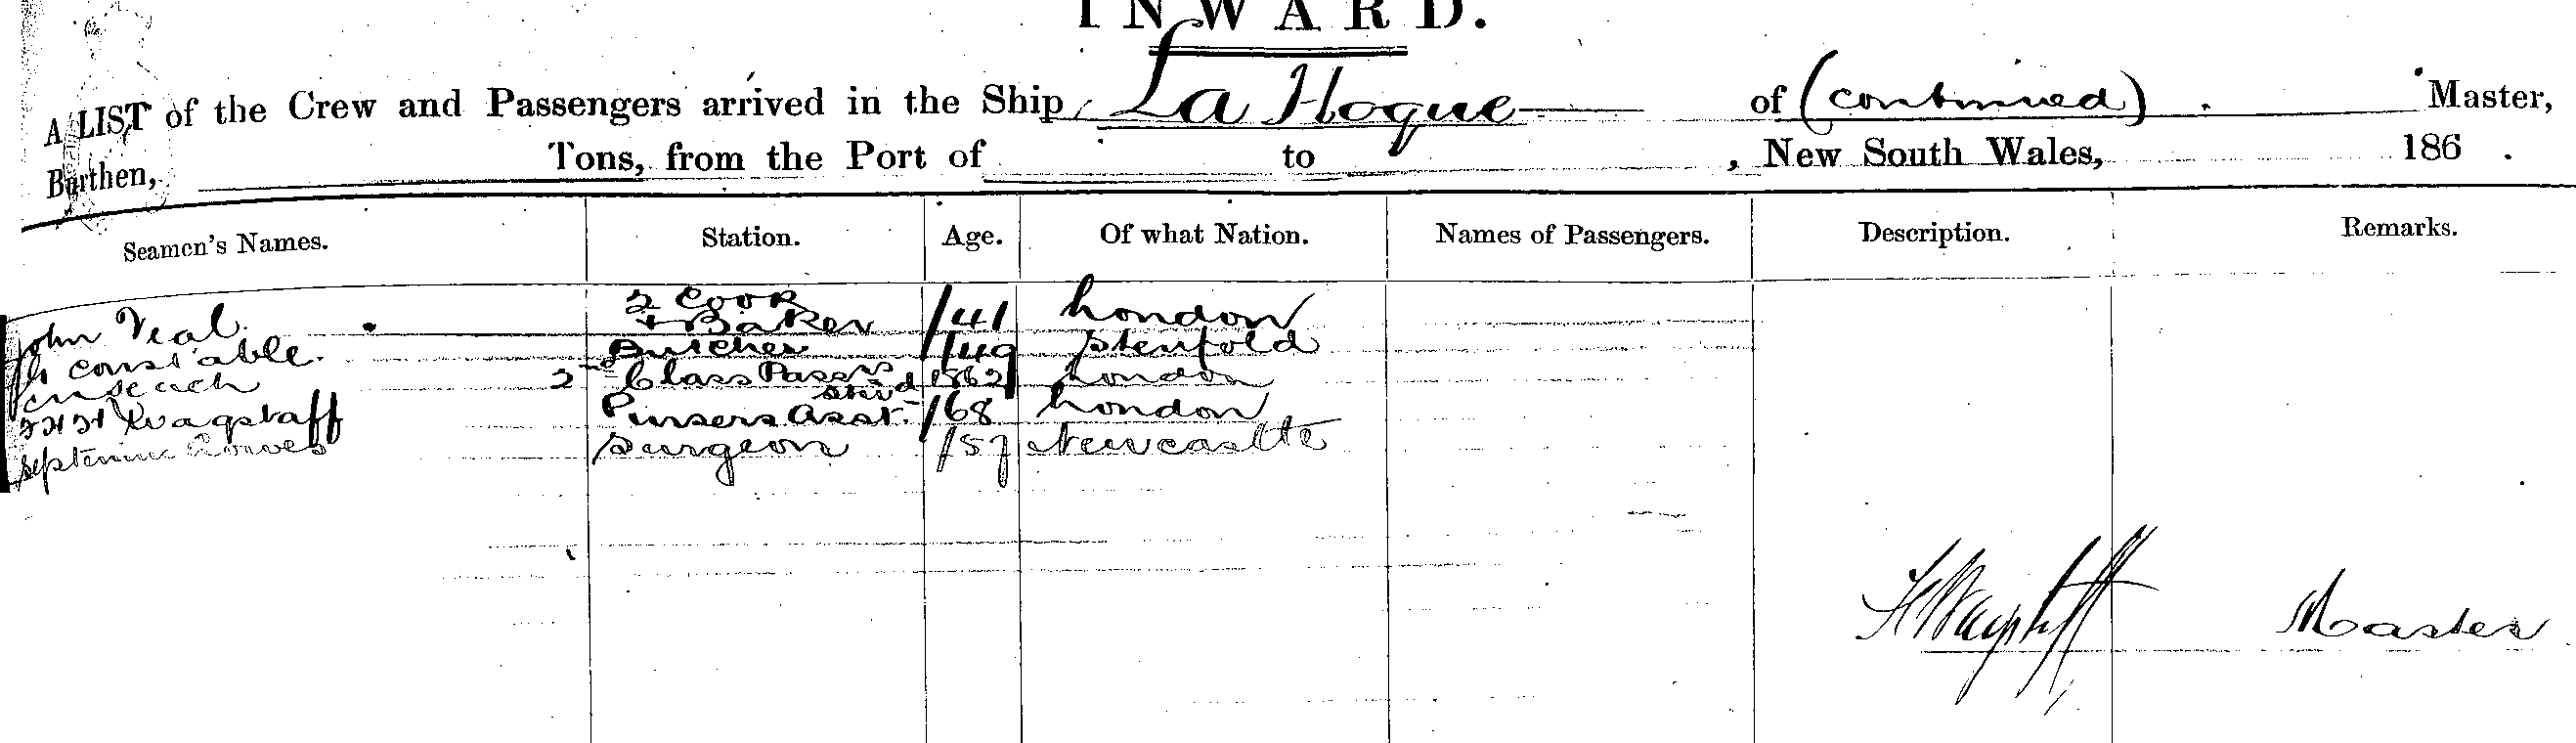 INWARD.
A LIST of the Crew and Passengers arrived in the Ship La Hogue of (continued) Master,
Burthen, Tons, from the Port of to , New South Wales, 186 .
Seamen's Names. Station. Age. Of what Nation. Names of Passengers. Description. Remarks.
John Veal 2 Cook + Baker /41 London
constable Butcher /49
2nd Class Passrs Stwd 1862 London
Wagstaff Pursers Asst. /68 London
Surgeon /57 Newcastle
HWagstaff Master